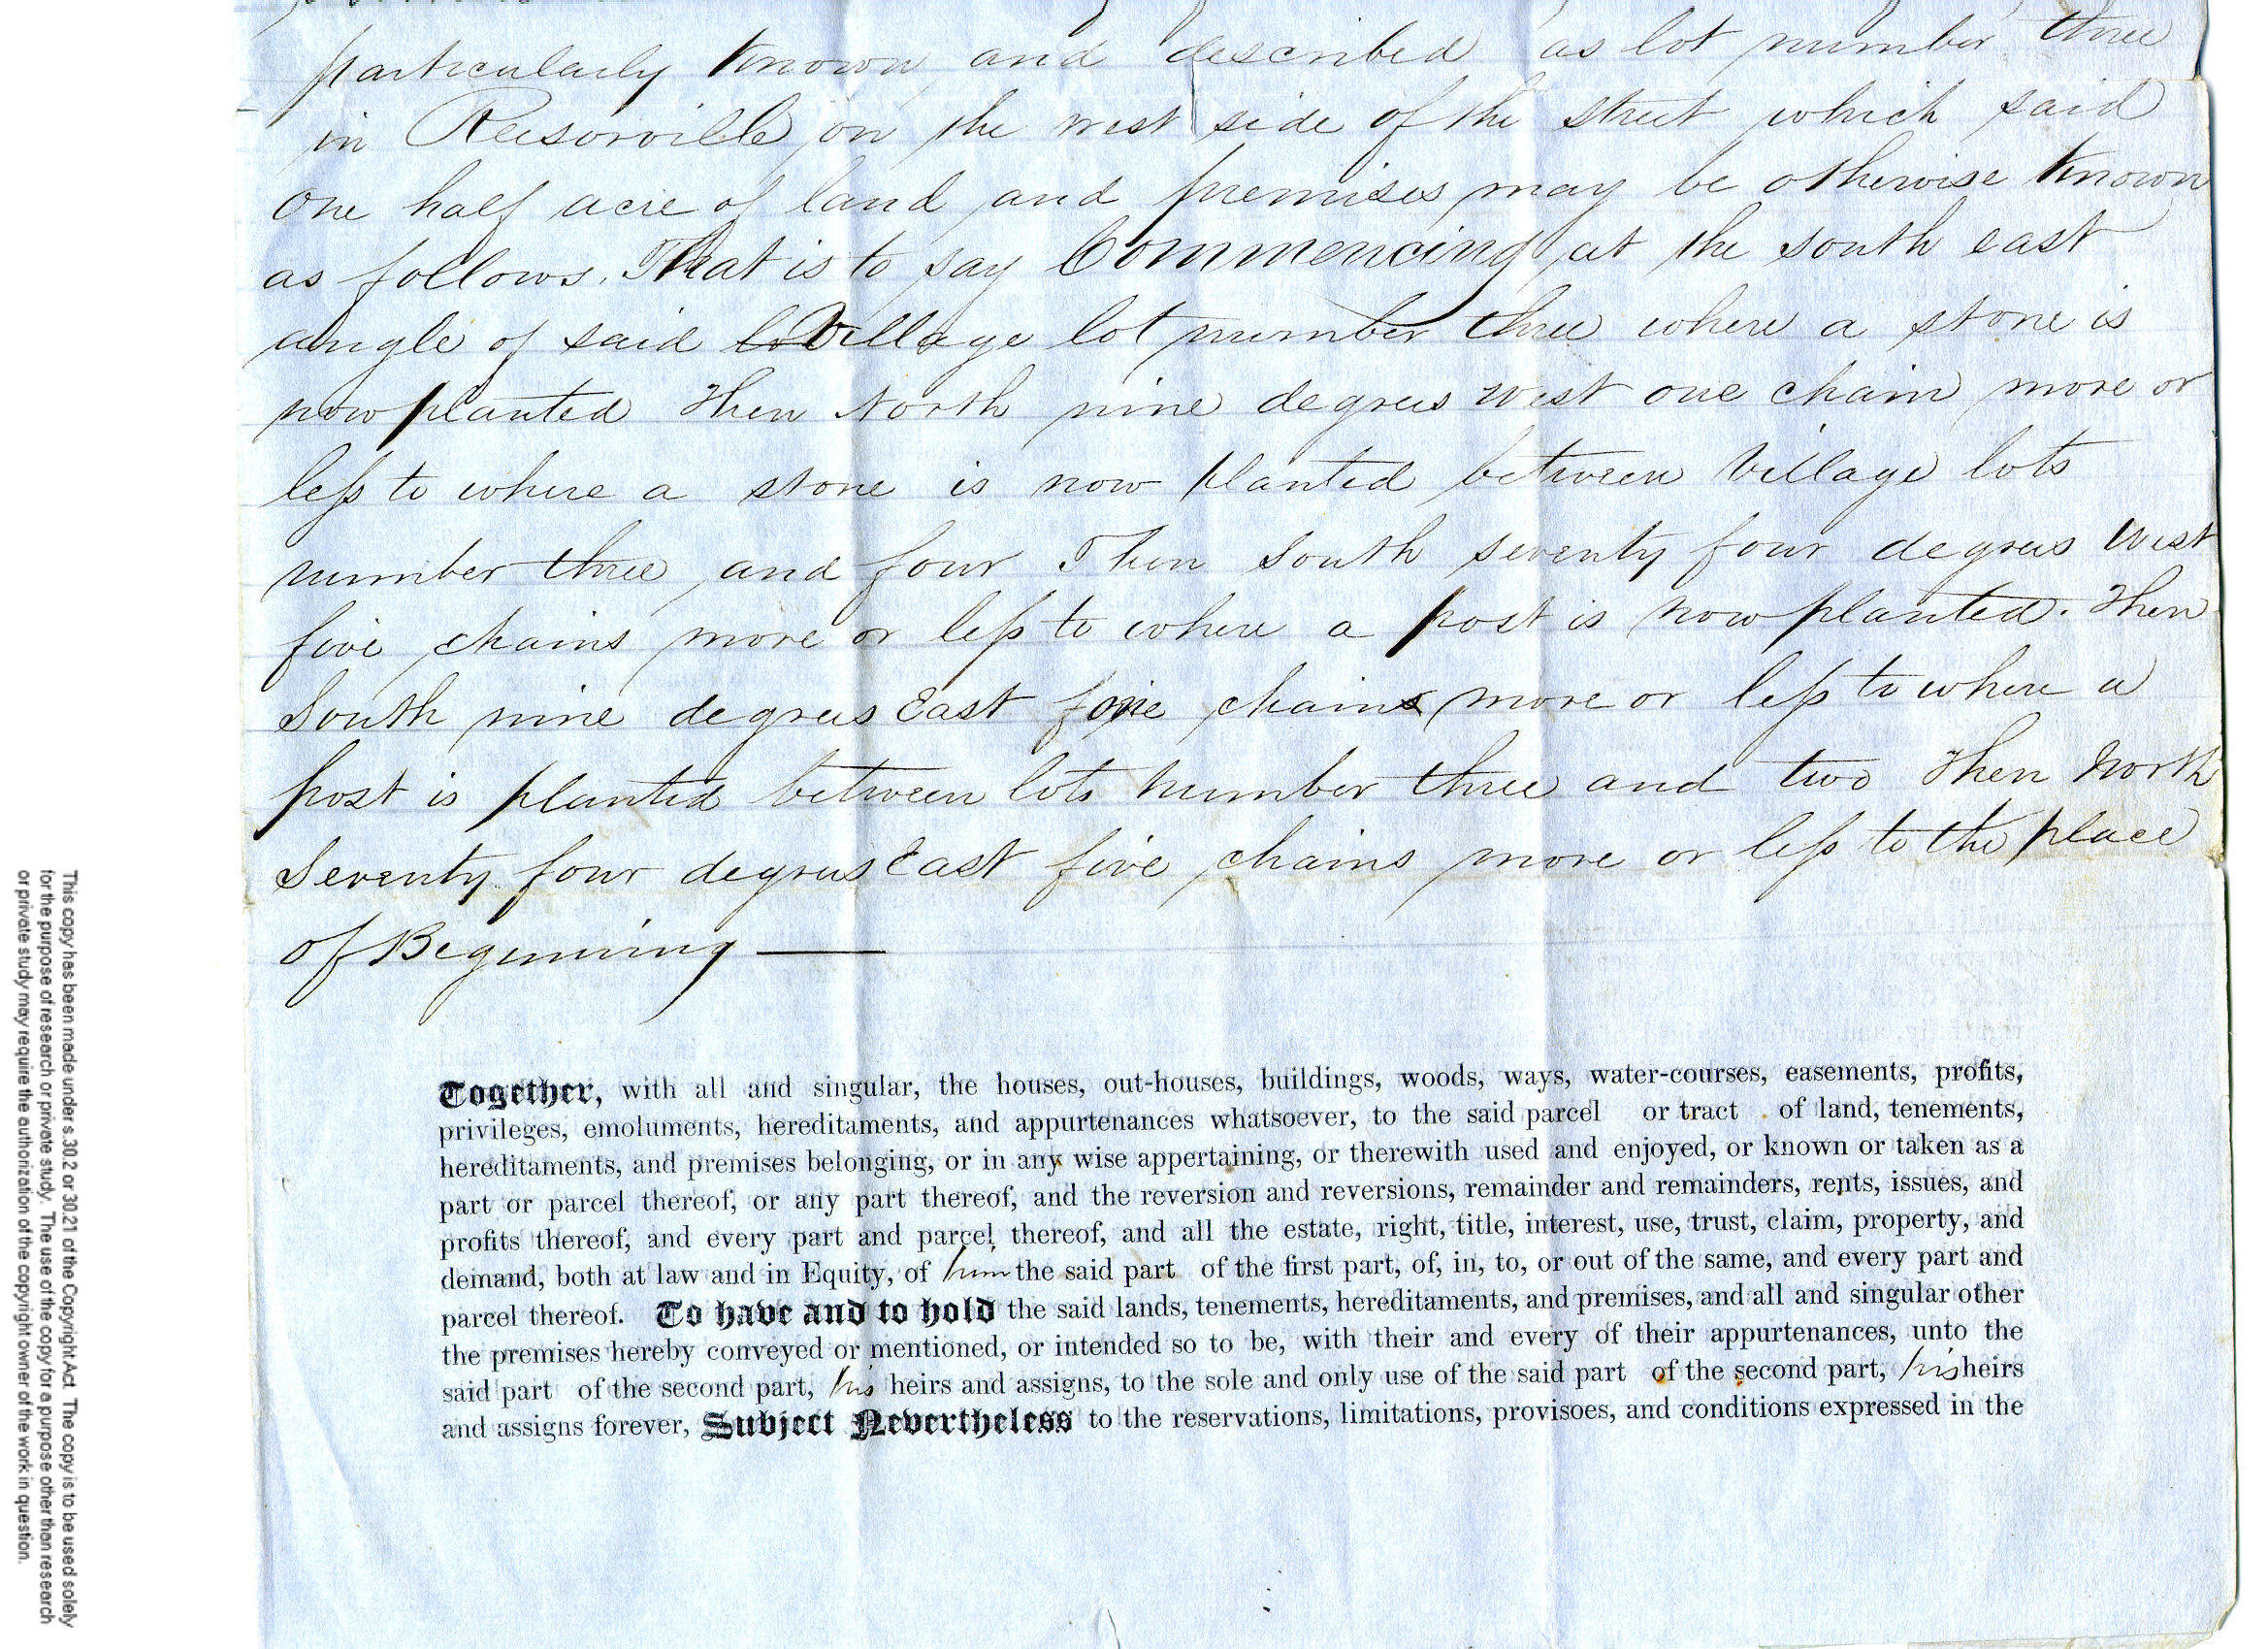 particularly known and described as lot number three
in Reesorville on the west side of the street which said
one half acre of land and premises may be otherwise known
as follows. That is to say Commencing at the south east
angle of said Village lot number three where a stone is
now planted Then North nine degrees west one chain more or
less to where a stone is now planted between Village lots
number three and four Then South seventy four degrees West
five chains more or less to where a post is now planted. Then
South nine degrees East one chain more or less to where a
post is planted between lots number three and two Then North
Seventy four degrees East five chains more or less to the place
of Beginning
Together, with all and singular, the houses, out-houses, buildings, woods, ways, water-courses, easements, profits,
privileges, emoluments, hereditaments, and appurtenances whatsoever, to the said parcel or tract of land, tenements,
hereditaments, and premises belonging, or in any wise appertaining, or therewith used and enjoyed, or known or taken as a
part or parcel thereof, or any part thereof, and the reversion and reversions, remainder and remainders, rents, issues, and
profits thereof, and every part and parcel thereof, and all the estate, right, title, interest, use, trust, claim, property, and
demand, both at law and in Equity, of him the said part of the first part, of, in, to, or out of the same, and every part and
parcel thereof. To have and to hold the said lands, tenements, hereditaments, and premises, and all and singular other
the premises hereby conveyed or mentioned, or intended so to be, with their and every of their appurtenances, unto the
said part of the second part, his heirs and assigns, to the sole and only use of the said part of the second part, his heirs
and assigns forever, Subject Nevertheless to the reservations, limitations, provisoes, and conditions expressed in the
This copy has been made under s.30.2 or 30.21 of the Copyright Act. The copy is to be used solely
for the purpose of research or private study. The use of the copy for a purpose other than research
or private study may require the authorization of the copyright owner of the work in question.